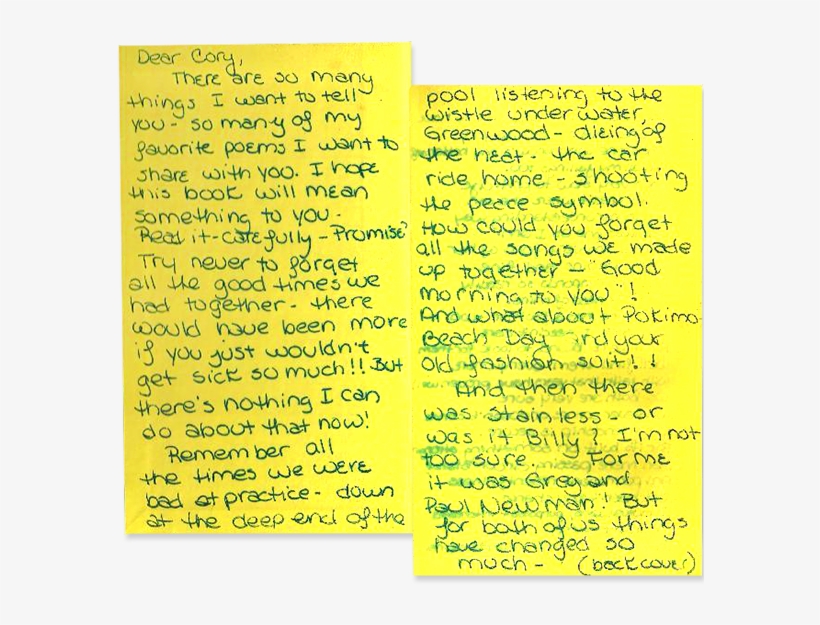 Dear Cory,
There are so many
things I want to tell
you - so many of my
favorite poems I want to
share with you. I hope
this book will mean
something to you.
Read it - carefully - Promise?
Try never to forget
all the good times we
had together - there
would have been more
if you just wouldn't
get sick so much!! But
there's nothing I can
do about that now!
Remember all
the times we were
bad at practice - down
at the deep end of the
pool listening to the
wistle under water,
Greenwood - dieing of
the heat - the car
ride home - shooting
the peace symbol.
How could you forget
all the songs we made
up together - "Good
morning to you"!
And what about Pokimo
Beach Day your
old fashion suit!!
And then there
was stainless - or
was it Billy? I'm not
too sure. For me
it was Greg and
Paul Newman! But
for both of us things
have changed so
much - (back cover)